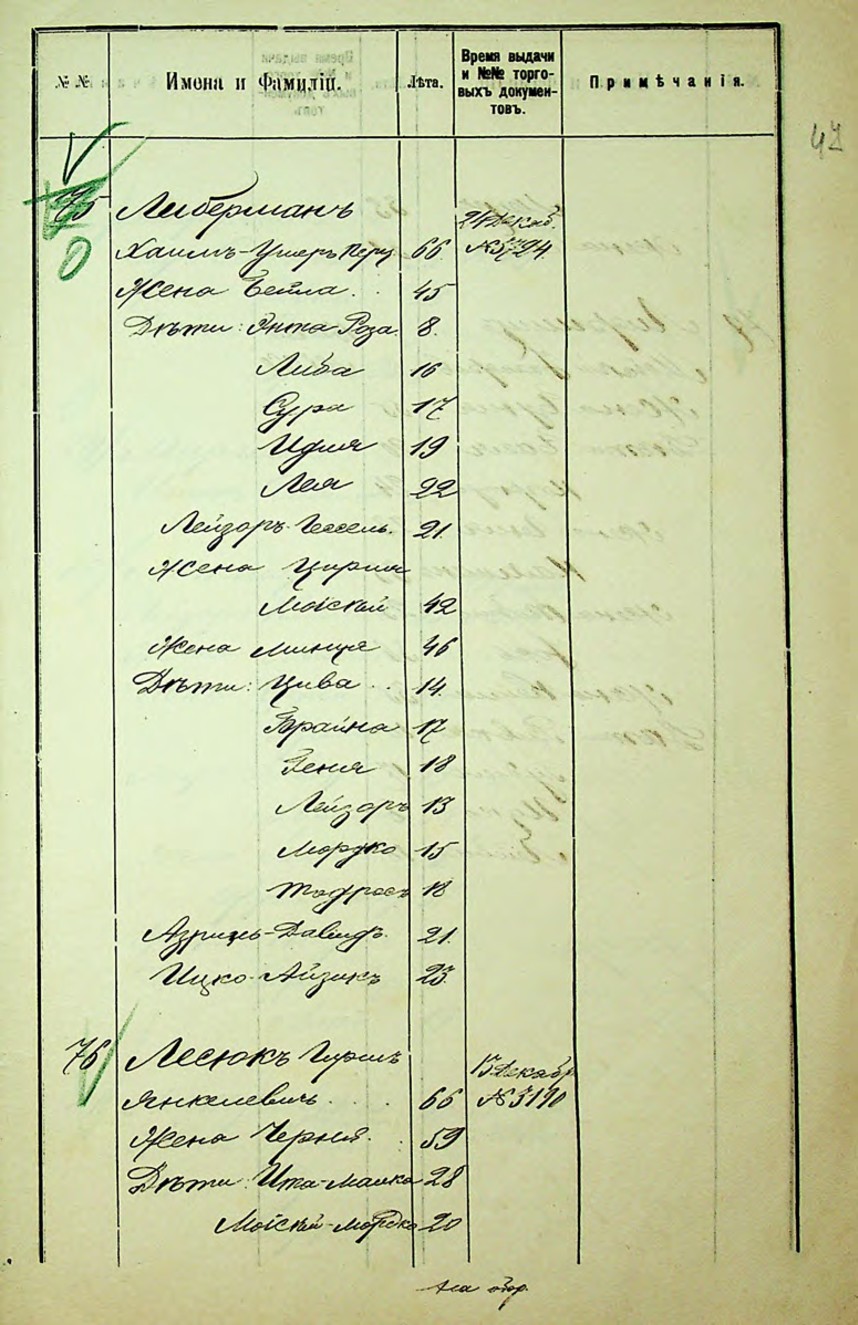 № №
Имена и Фамиліи.
Лѣта.
Время выдачи
и №№ торго-
выхъ докумен-
товъ.
Примѣчанія.
47
75 Либерманъ 24 Декаб.
Хаимъ-Ушеръ 66
Жена Бейла 45
Дѣти: Роза 8.
Либа 16
Сура 17
Идия 19
Лея 22
Лейзоръ 21.
Жена
Мойсей 42
Жена Минця 46
Дѣти: Цива 14.
Брайна 17
Геня 18
Лейзоръ 13
Мордко 15
Тодросъ 18
Азриль-Давидъ. 21.
Ицко-Айзикъ 23.
76 Лесюкъ Гиршъ 13 Декабр.
Янкелевичъ 66 № 3190
Жена Черня 59
Дѣти: 28
Мойсей-Мордко 20